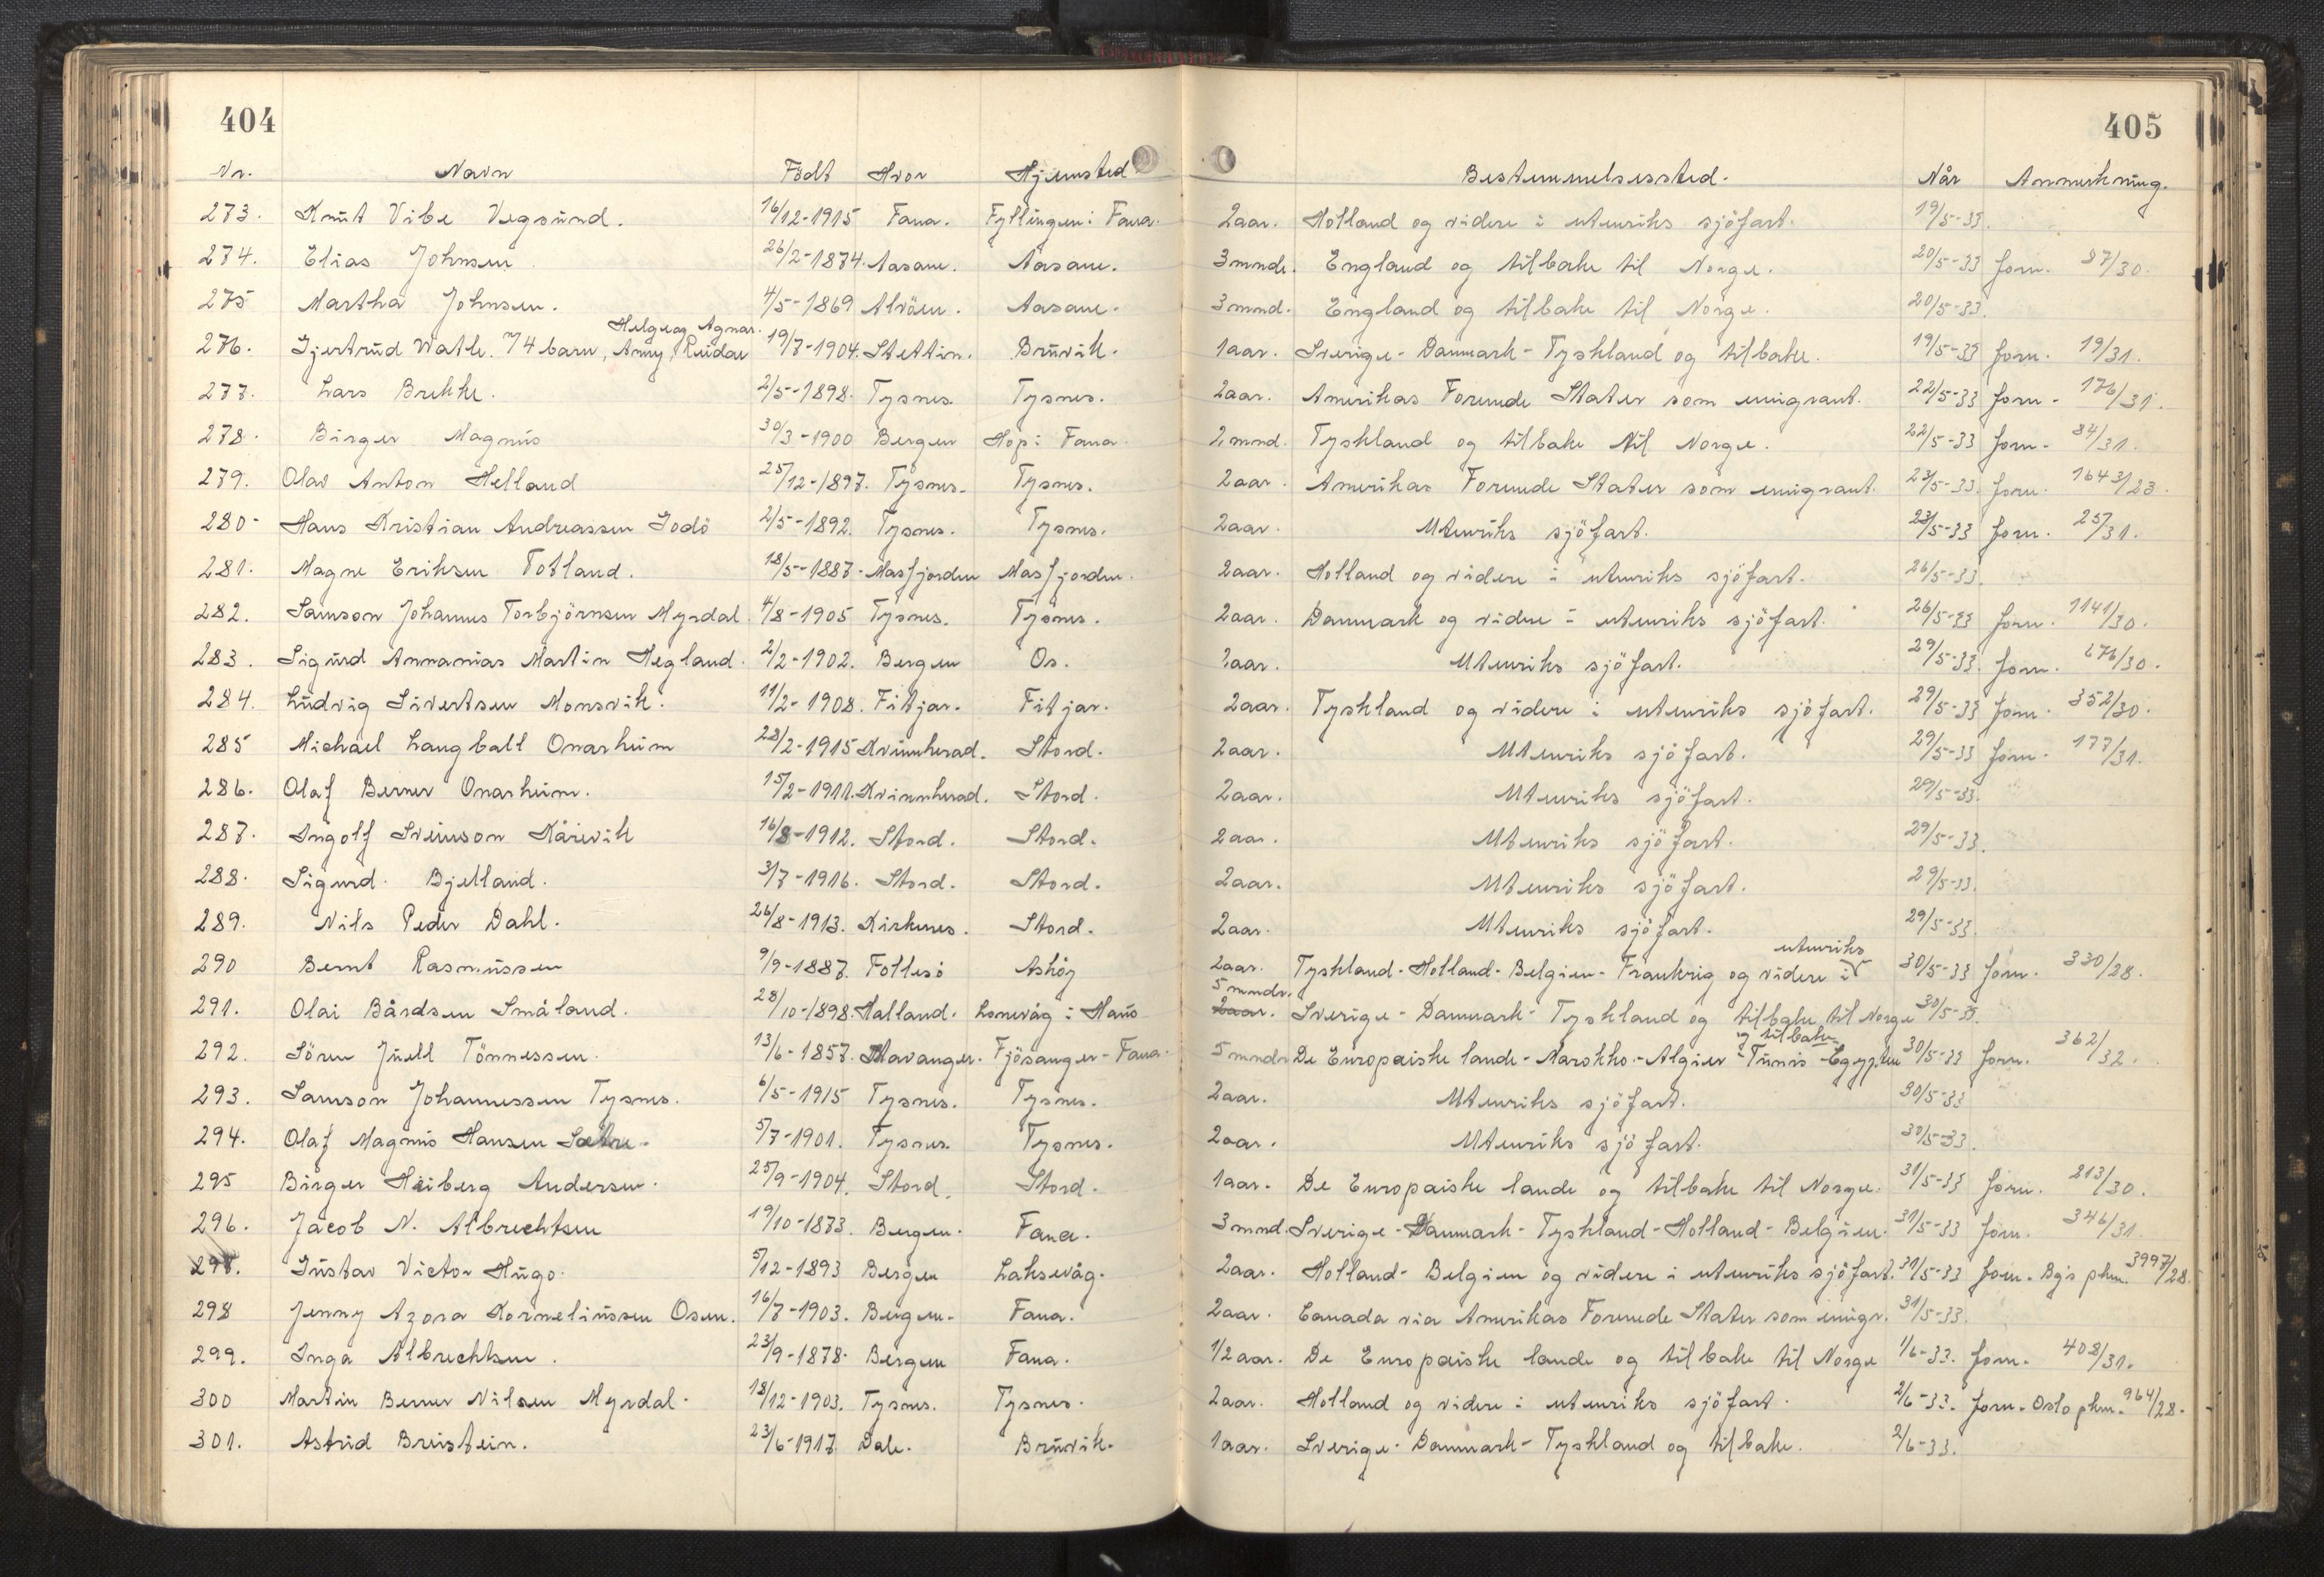 404
405
Nr. Navn Födt Hvor Hjemsted Bestemmelsessted. Når Anmerkning.
273. Knut Vibe Vegsund. 16/12-1915 Fana. Fyllingen i Fana. 2aar. Holland og videre i utenriks sjöfart. 19/5-33.
274. Elias Johnsen 26/2-1874. Aasane. Aasane. 3mnde. England og tilbake til Norge. 20/5-33 forn. 87/30.
275 Martha Johnsen. 4/5-1869 Alvöen. Aasane. 3mnd. England og tilbake til Norge. 20/5-33.
Helge og Agnar.
276. Gjertrud Watle. m/4 barn, Anny, Reidar 19/7-1904. Stettin. Bruvik. 1aar. Sverige - Danmark - Tyskland og tilbake. 19/5-33 forn. 19/31.
277. Lars Brekke. 2/5-1898. Tysnes. Tysnes. 2aar. Amerikas Forenede Stater som emigrant. 22/5-33 forn - 176/31.
278. Birger Magnus 30/3-1900 Bergen Hop i Fana. 2 mnd. Tyskland og tilbake til Norge. 22/5-33 forn - 84/31.
279. Olav Anton Helland 25/12-1897. Tysnes. Tysnes. 2aar. Amerikas Forenede Stater som emigrant. 23/5-33. forn. 1643/23.
280 - Hans Kristian Andreassen Godö 2/5-1892. Tysnes. Tysnes. 2aar. Utenriks sjöfart. 23/5-33 forn. 257/31.
281. Magne Eriksen Totland. 18/5-1887 - Masfjorden Masfjorden. 2aar. Holland og videre i utenriks sjöfart. 26/5-33.
282. Samson Johannes Torbjörnsen Myrdal. 4/8-1905 Tysnes. Tysnes. 2aar. Danmark og videre i utenriks sjöfart. 26/5-33 forn. 1141/30.
283. Sigurd Annanias Martin Hegland. 2/2-1902. Bergen Os. 2aar. Utenriks sjöfart. 29/5-33. forn. 676/30.
284. Ludvig Sivertsen Monsvik. 11/2-1908. Fitjar. Fitjar. 2aar. Tyskland og videre i utenriks sjöfart. 29/5-33 forn. 352/30.
285 Michael Langball Onarheim 28/2-1915 Kvinnherad. Stord. 2aar. Utenriks sjöfart. 29/5-33 forn. 177/31.
286. Olaf Berner Onarheim. 15/2-1911. Kvinnherad. Stord. 2aar. Utenriks sjöfart. 29/5-33.
287. Ingolf Sveinson Kårevik 16/8-1912. Stord. Stord. 2aar. Utenriks sjöfart. 29/5-33.
288. Sigurd Bjelland. 3/7-1916. Stord. Stord. 2aar. Utenriks sjöfart. 29/5-33.
289. Nils Peder Dahl. 26/8-1913. Kirkenes. Stord. 2aar. Utenriks sjöfart. 29/5-33.
utenriks
290 Bernt Rasmussen 9/9-1887. Follesö Askøy 2aar. Tyskland - Holland - Belgien - Frankrig og videre i 30/5-33 forn. 330/28.
5 mndr.
291. Olai Bårdsen Småland. 28/10-1898. Halland. Lonevåg i Haus 2aar. Sverige - Danmark - Tyskland og tilbake til Norge 30/5-33.
og tilbake
292. Sören Juell Tönnessen. 13/6-1857. Stavanger. Fjösanger - Fana. 5 mndr. De Europæiske lande - Marokko - Algier - Tunis - Egypten 30/5-33 forn. 362/32.
293. Samson Johannessen Tysnes. 6/5-1915 Tysnes. Tysnes. 2aar. Utenriks sjöfart. 30/5-33
294. Olaf Magnus Hansen Sætre. 5/7-1901. Tysnes. Tysnes. 2aar. Utenriks sjöfart. 30/5-33.
295 Birger Heiberg Andersen. 25/9-1904. Stord. Stord. 1aar. De Europæiske lande og tilbake til Norge. 31/5-33 forn. 213/30.
296. Jacob N. Albrechtsen 19/10-1873. Bergen. Fana. 3 mnd. Sverige - Danmark - Tyskland - Holland - Belgien. 31/5-33 forn. 346/31.
297. Gustav Victor Hugo. 5/12-1893 Bergen Laksevåg. 2aar. Holland - Belgien og videre i utenriks sjöfart. 31/5-33 forn. Bg's pkm. 3997/28.
298 Jenny Azora Kornelinssen Osen. 16/7-1903. Bergen. Fana. 2aar. Canada via Amerikas Forenede Stater som emigr. 31/5-33.
299. Inga Albrechtsen. 23/9-1878. Bergen Fana. 1/2 aar. De Europæiske lande og tilbake til Norge 1/6-33. forn. 408/31.
300 Martin Berner Nilsen Myrdal. 18/12-1903. Tysnes. Tysnes. 2aar. Holland og videre i utenriks sjöfart. 2/6-33. forn. Oslo pkm. 964/28.
301. Astrid Breistein. 23/6-1917 Dale. Bruvik. 1aar. Sverige - Danmark - Tyskland og tilbake. 2/6-33.